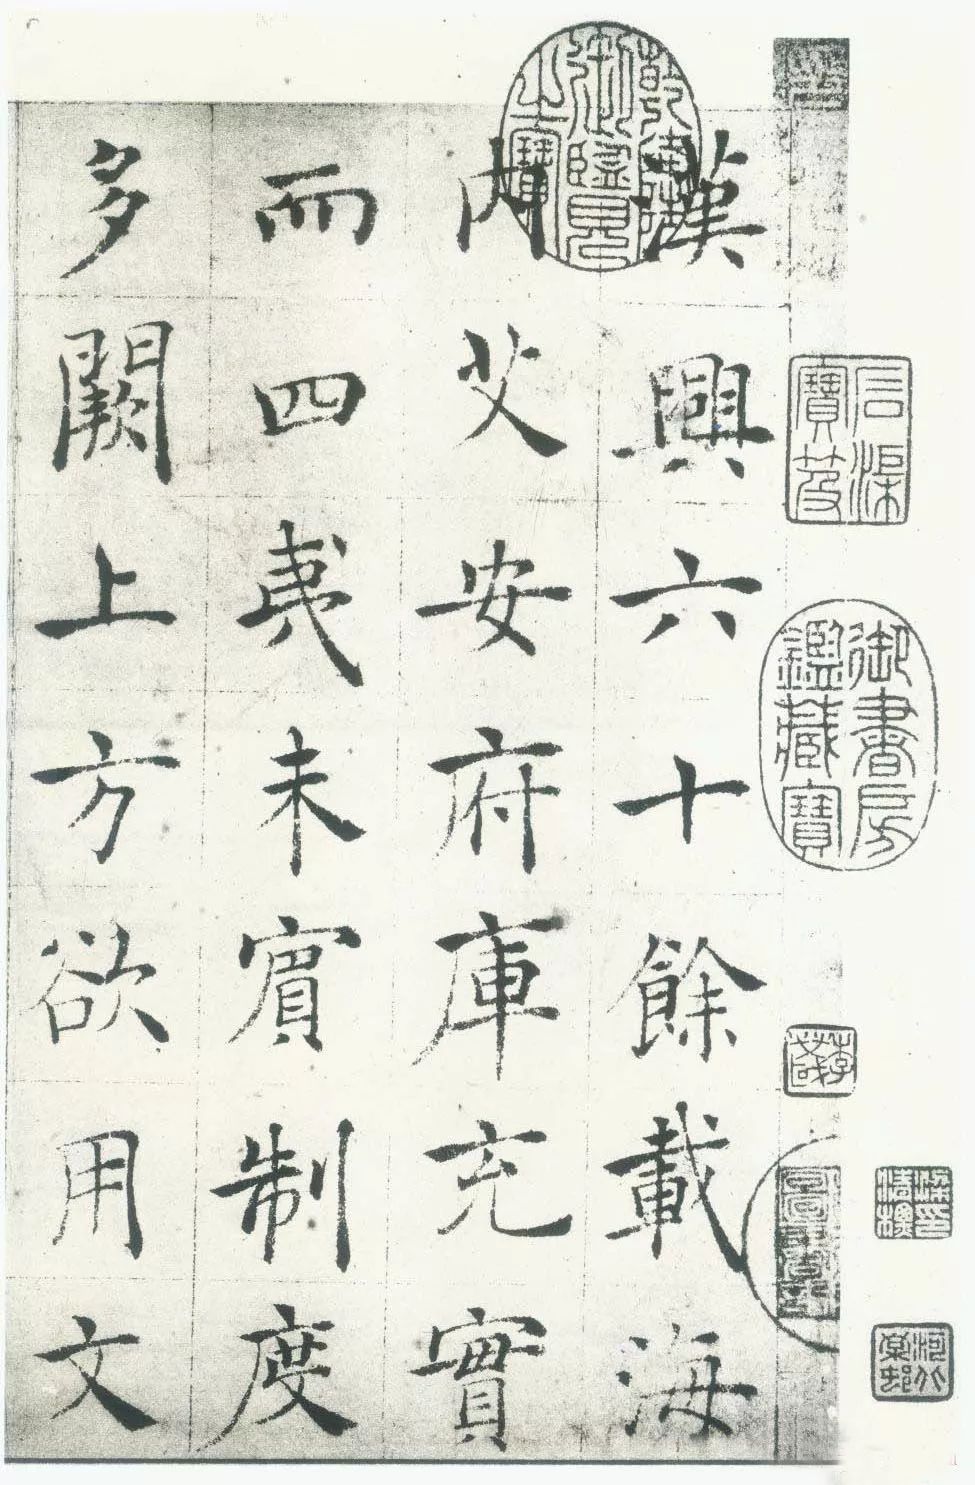 石渠寶笈
御書房鑑藏寶
河北棠村
乾隆御覽之寶
漢興六十餘載海
内艾安府庫充實
而四夷未賓制度
多闕上方欲用文